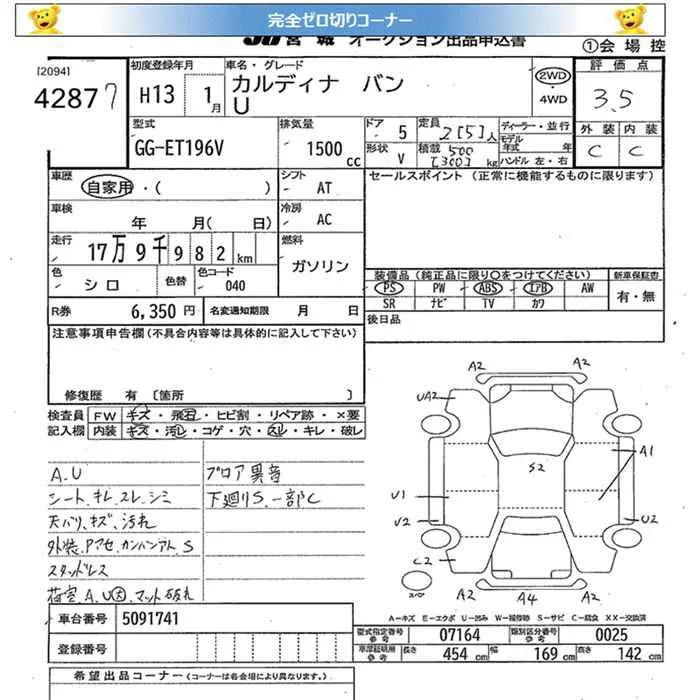 完全ゼロ切りコーナー
JU 宮城 オークション出品申込書 ①会場控
[2094]
42877
初度登録年月
H13 1月
車名・グレード
カルディナ バン
U
2WD
4WD
評価点
3.5
外装 内装
C C
型式
GG-ET196V
排気量
1500cc
ドア 5
形状 V
定員 2[5]人
積載 500
[300]kg
ディーラー・並行
モデル年式 年
ハンドル 左・右
車歴
自家用・( )
シフト AT
セールスポイント (正常に機能するものに限ります)
車検
年 月( 日)
冷房 AC
走行
17万9千982km
燃料
ガソリン
色
シロ
色替
色コード
040
装備品(純正品に限り○をつけてください)
新車保証書
PS PW ABS エアB AW
有・無
SR ナビ TV カワ
R券 6,350円
名変通知期限 月 日
後日品
注意事項申告欄(不具合内容等は具体的に記入して下さい)
修復歴 有〔箇所 〕
検査員 FW キズ・飛石・ヒビ割・リペア跡・×要
記入欄 内装 キズ・汚レ・コゲ・穴・スレ・キレ・破レ
A.U
シート、キレ、スレ、シミ
天バリ、キズ、汚れ
外装、Pアセ、カンバンアト、S
スタッドレス
荷室、A、U大、マット破れ
ブロア異音
下廻りS、一部C
A2
A2
UA2
A1
S2
U1
U2
U2
C2
スペア
A2
A4
A2
A＝キズ E＝エクボ U＝凹み W＝補修跡 S＝サビ C＝腐食 XX＝交換済
車台番号 5091741
登録番号
型式指定番号 参考 07164
類別区分番号 0025
車庫証明用 参考 長さ 454cm 幅 169cm 高さ 142cm
希望出品コーナー(コーナーは各会場により異なります。)